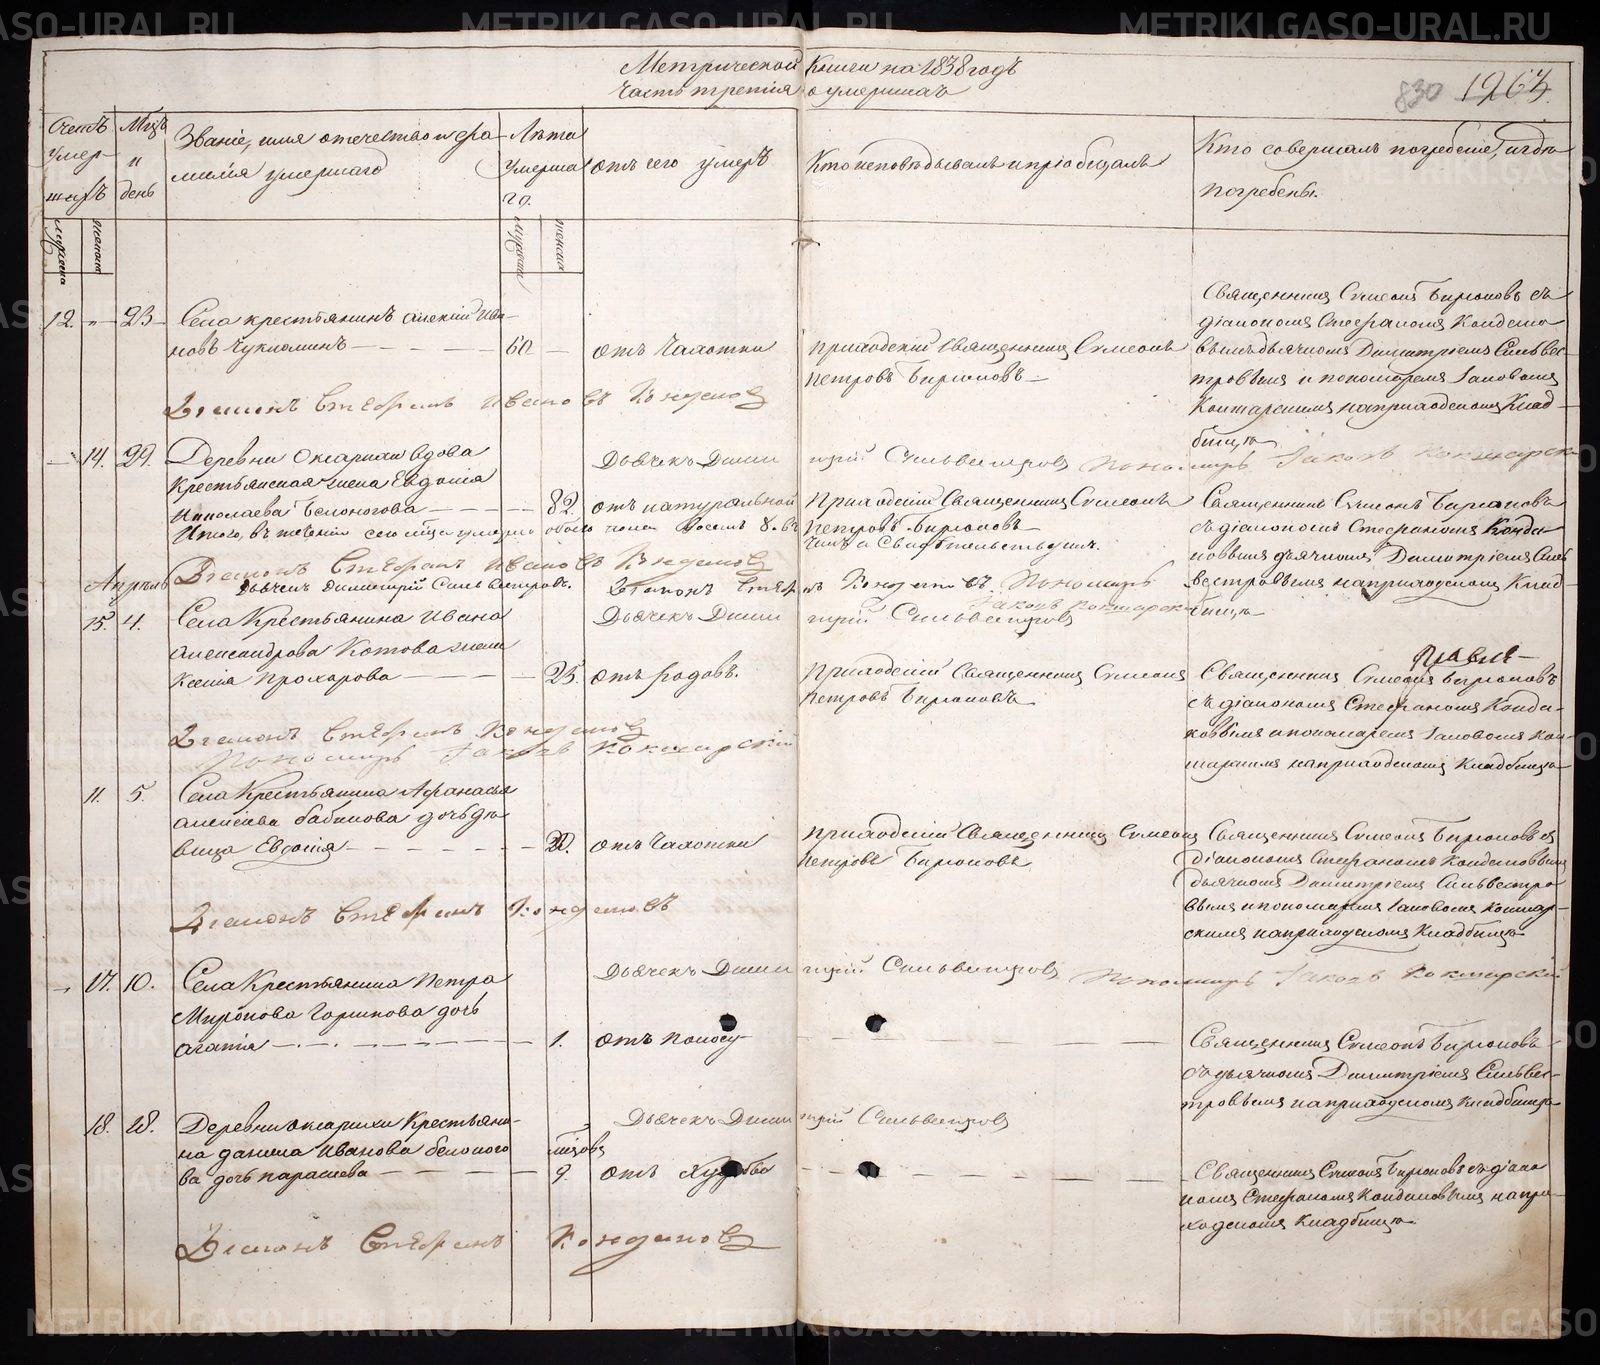 METRIKI.GASO-URAL.RU
Метрической Книги на 1838 годъ
Часть третія о умершихъ
830 1963.
Счетъ умершихъ
Мцъ и день
Званіе, имя отечество и фамилія умершаго
Лѣта умершаго.
отъ чего умеръ
Кто исповѣдывалъ и пріобщалъ
Кто совершалъ погребеніе, и гдѣ погребены.
мужска
женска
мужска
женска
12. 23 Села крестьянинъ Алексій Ива-
новъ Чукломинъ 60 отъ Чахотки
приходскій Священникъ Симеонъ
Петровъ Бирюковъ
Священникъ Симеонъ Бирюковъ съ
діакономъ Стефаномъ Кондако-
вымъ дьячкомъ Димитріемъ Сильвес-
тровымъ и пономаремъ Іаковомъ
Кокшарскимъ на приходскомъ Клад-
бищѣ
Діаконъ Стефанъ Ивановъ Кондаковъ
Дьячекъ Димитрій Сильвестровъ Пономарь Іаковъ Кокшарскій
14. 29. Деревни Окарихи вдова
Крестьянская жена Евдокія
Николаева Белоногова 82. отъ натуральной
Приходскій Священникъ Симеонъ
Петровъ Бирюковъ
Священникъ Симеонъ Бирюковъ
съ діакономъ Стефаномъ Конда-
ковымъ дьячкомъ Димитріемъ Силь
вестровымъ на приходскомъ Клад-
бищѣ
Итого, въ теченіи сего мца умерло обоего пола Восемь 8. въ
чемъ и Свидѣтельствуемъ.
Діаконъ Стефанъ Ивановъ Кондаковъ
Дьячекъ Димитрій Сильвестровъ. Діаконъ Стефанъ Кондаковъ. Пономарь
Іаковъ Кокшарскій
Апрѣль
15. 4. Села Крестьянина Ивана
Александрова Котова жена
Ксенія Прохорова 25. отъ родовъ.
Дьячекъ Димитрій Сильвестровъ
Приходскій Священникъ Симеонъ
Петровъ Бирюковъ
Священникъ Симеонъ Бирюковъ
съ діакономъ Стефаномъ Конда-
ковымъ и пономаремъ Іаковомъ Кок-
шарскимъ на приходскомъ Кладбищѣ
Діаконъ Стефанъ Кондаковъ
Пономарь Іаковъ Кокшарскій
5. Села Крестьянина Афанасья
Алексіева Бабинова дочь дѣ
вица Евдокія 20. отъ Чахотки
Приходскій Священникъ Симеонъ
Петровъ Бирюковъ
Священникъ Симеонъ Бирюковъ съ
діакономъ Стефаномъ Кондаковымъ
дьячкомъ Димитріемъ Сильвестро
вымъ и пономаремъ Іаковомъ Кокшар-
скимъ на приходскомъ Кладбищѣ
Діаконъ Стефанъ Кондаковъ
Дьячекъ Димитрій Сильвестровъ Пономарь Іаковъ Кокшарскій
17. 10. Села Крестьянина Петра
Миронова дочь
Агапія 1. отъ Поносу
Священникъ Симеонъ Бирюковъ
съ дьячкомъ Димитріемъ Сильвес-
тровымъ на приходскомъ кладбищѣ
Дьячекъ Димитрій Сильвестровъ
18. 28. Деревни Окарихи Крестьяни-
на Данила Иванова Белоного
ва дочь Параскева 9. отъ
Священникъ Симеонъ Бирюковъ съ діако
номъ Стефаномъ Кондаковымъ на при-
ходскомъ Кладбищѣ
Діаконъ Стефанъ Кондаковъ